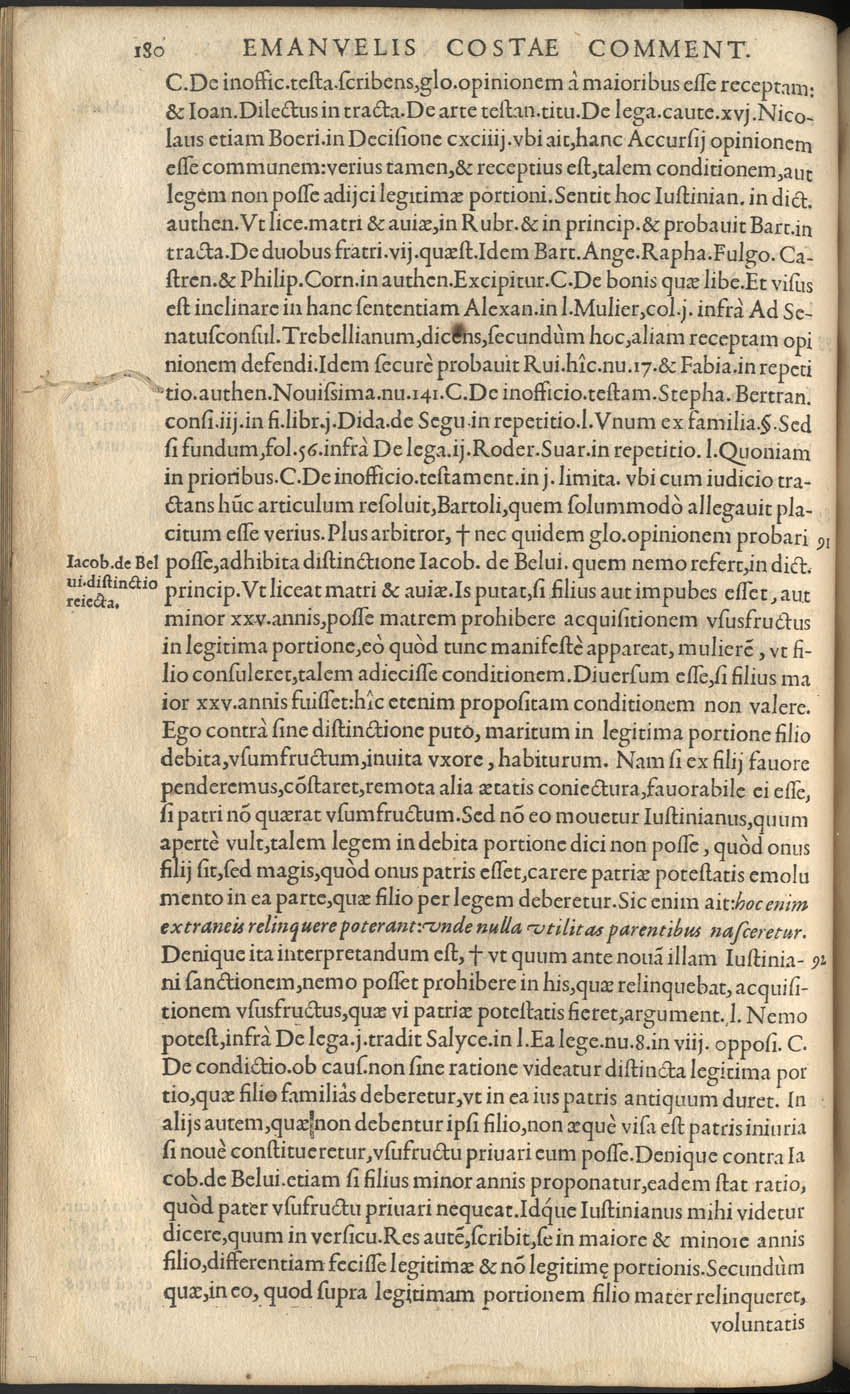 180 EMANVELIS COSTAE COMMENT.
C.De inoffic.testa.scribens,glo.opinionem à maioribus esse receptam:
& Ioan.Dilectus in tracta.De arte testan.titu.De lega.caute.xvj.Nico-
laus etiam Boeri.in Decisione cxciiij.vbi ait,hanc Accursij opinionem
esse communem:verius tamen,& receptius est,talem conditionem,aut
legem non posse adijci legitimæ portioni.Sentit hoc Iustinian. in dict.
authen.Vt lice.matri & auiæ,in Rubr.& in princip.& probauit Bart.in
tracta.De duobus fratri.vij.quæst.Idem Bart.Ange.Rapha.Fulgo. Ca-
stren.& Philip.Corn.in authen.Excipitur.C.De bonis quæ libe.Et visus
est inclinare in hanc sententiam Alexan.in l.Mulier,col.j. infrà Ad Se-
natusconsul.Trebellianum,dicens,secundùm hoc,aliam receptam opi
nionem defendi.Idem securè probauit Rui.hîc.nu.17.& Fabia.in repeti
tio.authen.Nouissima.nu.141.C.De inofficio.testam.Stepha. Bertran.
consi.iij.in fi.libr.j.Dida.de Segu.in repetitio.l.Vnum ex familia.§.Sed
si fundum,fol.56.infrà De lega.ij.Roder.Suar.in repetitio. l.Quoniam
in prioribus.C.De inofficio.testament.in j. limita. vbi cum iudicio tra-
ctans hũc articulum resoluit,Bartoli,quem solummodò allegauit pla-
citum esse verius.Plus arbitror, † nec quidem glo.opinionem probari 91
Iacob.de Bel
ui.distinctio
reiecta.
posse,adhibita distinctione Iacob. de Belui. quem nemo refert,in dict.
princip.Vt liceat matri & auiæ.Is putat,si filius aut impubes esset, aut
minor xxv.annis,posse matrem prohibere acquisitionem vsusfructus
in legitima portione,eò quòd tunc manifestè appareat, mulierẽ, vt fi-
lio consuleret,talem adiecisse conditionem.Diuersum esse,si filius ma
ior xxv.annis fuisset:hîc etenim propositam conditionem non valere.
Ego contrà sine distinctione puto, maritum in legitima portione filio
debita,vsumfructum,inuita vxore, habiturum. Nam si ex filij fauore
penderemus,cõstaret,remota alia ætatis coniectura,fauorabile ei esse,
si patri nõ quærat vsumfructum.Sed nõ eo mouetur Iustinianus,quum
apertè vult,talem legem in debita portione dici non posse, quòd onus
filij sit,sed magis,quòd onus patris esset,carere patriæ potestatis emolu
mento in ea parte,quæ filio per legem deberetur.Sic enim ait:hoc enim
extraneis relinquere poterant:vnde nulla vtilitas parentibus nasceretur.
Denique ita interpretandum est, † vt quum ante nouã illam Iustinia- 92
ni sanctionem,nemo posset prohibere in his,quæ relinquebat, acquisi-
tionem vsusfructus,quæ vi patriæ potestatis fieret,argument. l. Nemo
potest,infrà De lega.j.tradit Salyce.in l.Ea lege.nu.8.in viij. opposi. C.
De condictio.ob caus.non sine ratione videatur distincta legitima por
tio,quæ filio familiâs deberetur,vt in ea ius patris antiquum duret. In
alijs autem,quæ non debentur ipsi filio,non æquè visa est patris iniuria
si nouè constitueretur,vsufructu priuari eum posse.Denique contra Ia
cob.de Belui.etiam si filius minor annis proponatur,eadem stat ratio,
quòd pater vsufructu priuari nequeat.Idq́ue Iustinianus mihi videtur
dicere,quum in versicu.Res autẽ,scribit,se in maiore & minore annis
filio,differentiam fecisse legitimæ & nõ legitimę portionis.Secundùm
quæ,in eo, quod supra legitimam portionem filio mater relinqueret,
voluntatis